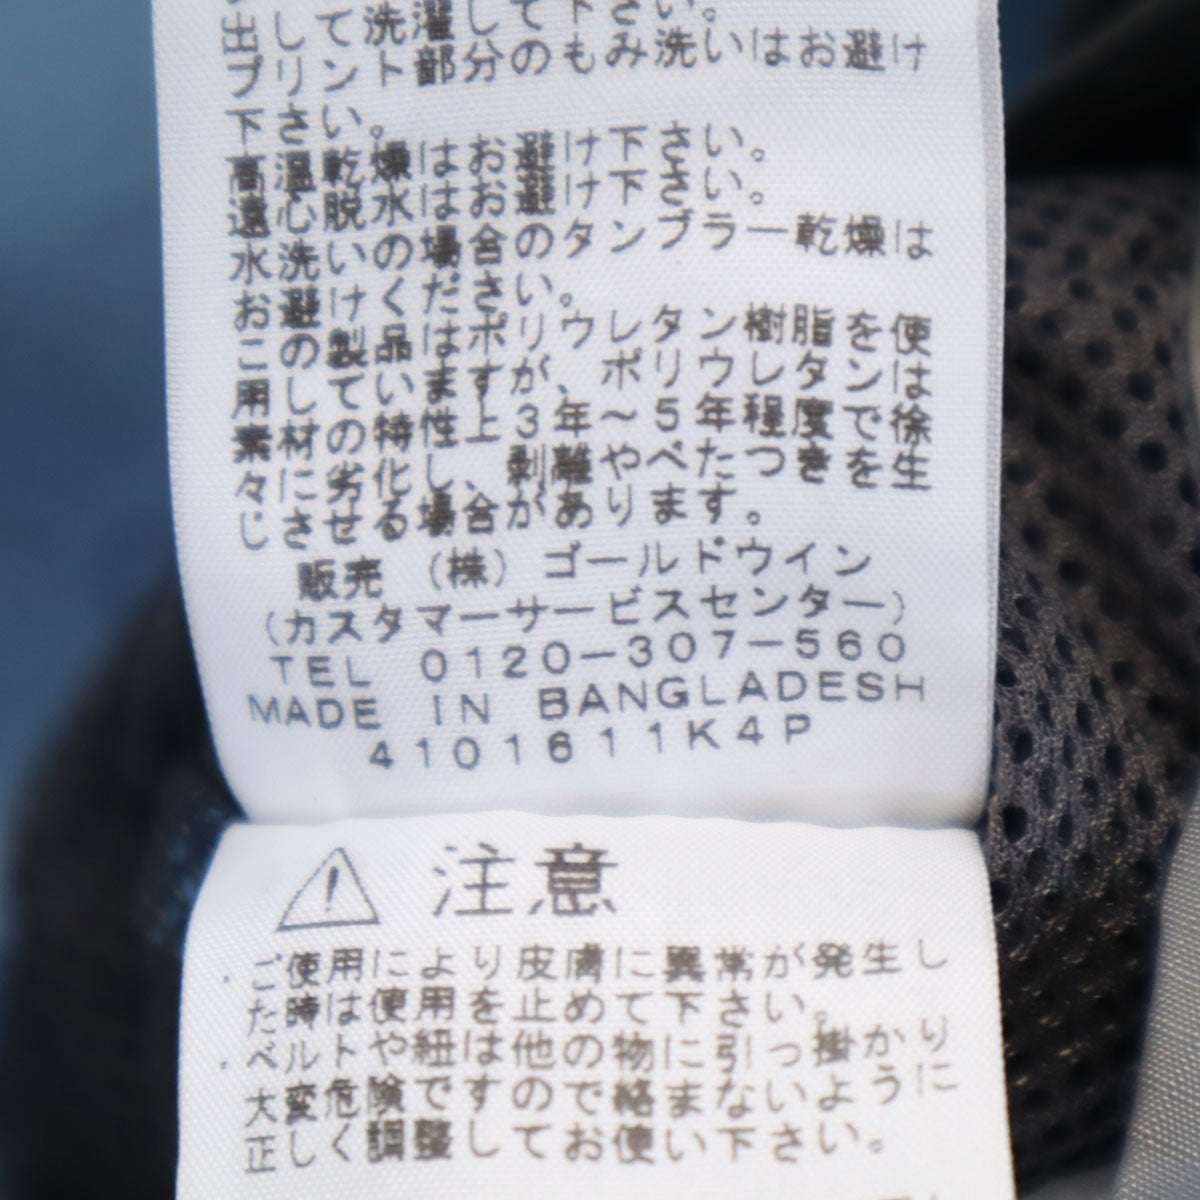 出して洗濯して下さい。
プリント部分のもみ洗いはお避け
下さい。
高温乾燥はお避け下さい。
遠心脱水はお避け下さい。
水洗いの場合のタンブラー乾燥は
お避けください。
この製品はポリウレタン樹脂を使
用していますが、ポリウレタンは
素材の特性上3年～5年程度で徐
々に劣化し、剥離やべたつきを生
じさせる場合があります。
販売 (株) ゴールドウイン
(カスタマーサービスセンター)
TEL 0120-307-560
MADE IN BANGLADESH
4101611K4P
注意
・ご使用により皮膚に異常が発生し
た時は使用を止めて下さい。
・ベルトや紐は他の物に引っ掛かり
大変危険ですので絡まないように
正しく調整してお使い下さい。